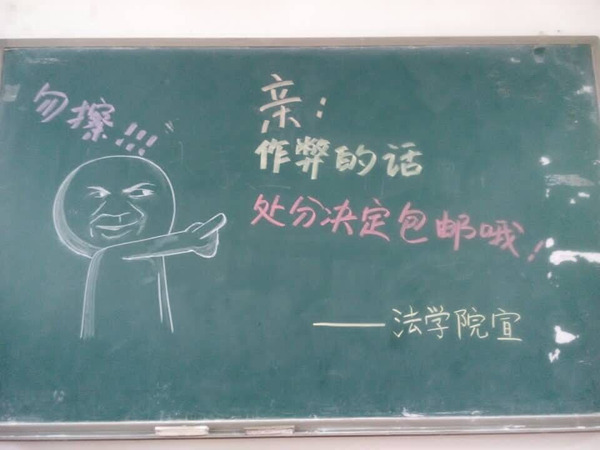 勿擦!!!
亲：
作弊的话
处分决定包邮哦！
——法学院宣